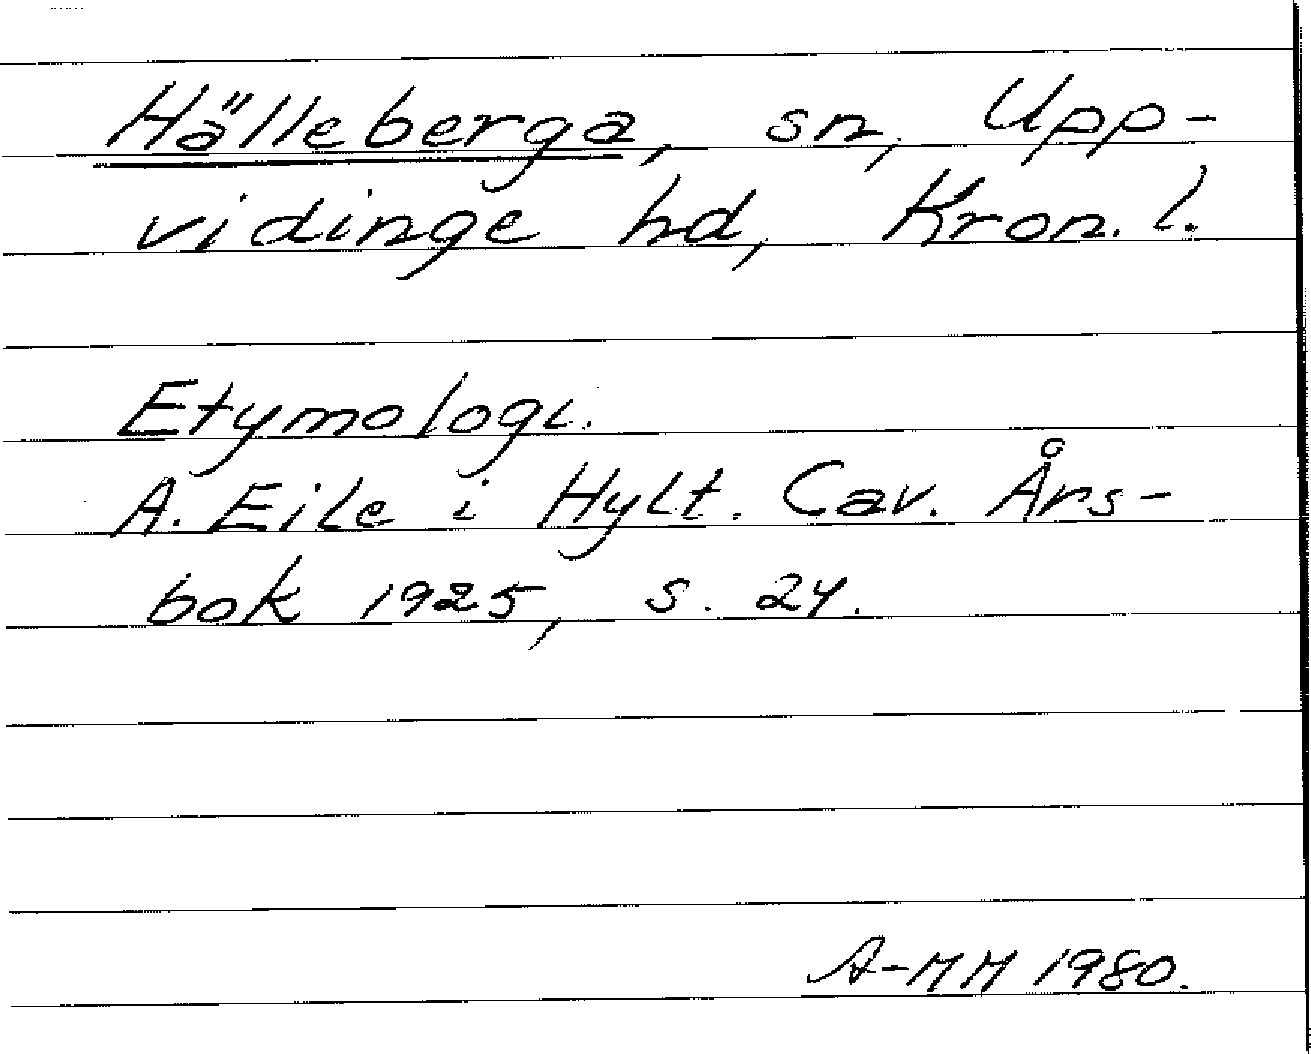 Hälleberga, sn, Upp-
vidinge hd, Kron. l.
Etymologi.
A. Eile i Hylt. Cav. Års-
bok 1925, s. 24.
A-MM 1980.